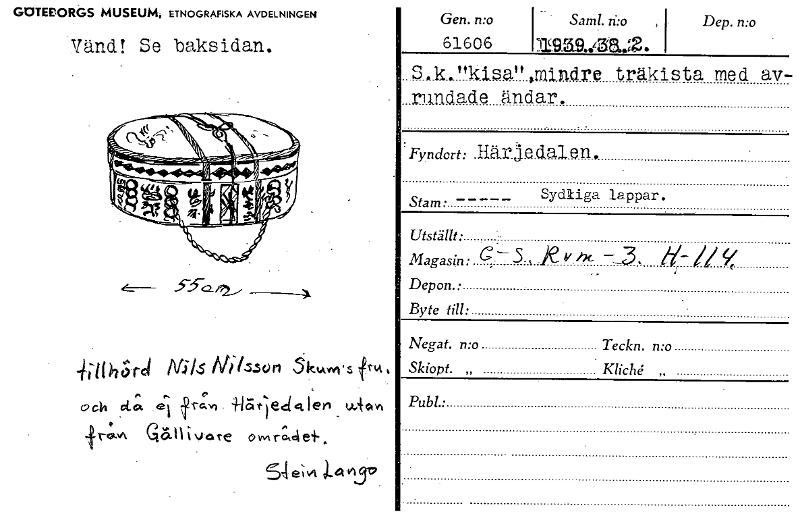 GÖTEBORGS MUSEUM, ETNOGRAFISKA AVDELNINGEN
Vänd! Se baksidan.
55cm
tillhörd Nils Nilsson Skum's fru.
och då ej från Härjedalen utan
från Gällivare området.
Stein Lango
Gen. n:o
61606
Saml. n:o
1939.38.2.
Dep. n:o
S.k."kisa", mindre träkista med av-
rundade ändar.
Fyndort: Härjedalen.
Stam: ----- Sydliga lappar.
Utställt:
Magasin: G-S. Rum - 3. H-114.
Depon.:
Byte till:
Negat. n:o
Teckn. n:o
Skiopt. „
Kliché „
Publ.: